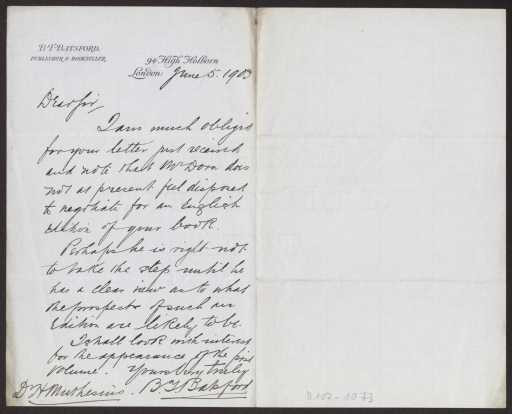 B.T. BATSFORD,
PUBLISHER & BOOKSELLER,
94 High Holborn
London, June 5. 1903
Dear Sir,
I am much obliged
for your letter just received
and note that Mr Dorn does
not at present feel disposed
to negotiate for an English
edition of your book.
Perhaps he is right not
to take the step until he
has a clear view as to what
the prospects of such an
edition are likely to be.
I shall look with interest
for the appearance of the first
volume. Yours very truly
Dr H Muthesius. B T Batsford
D 102-1073